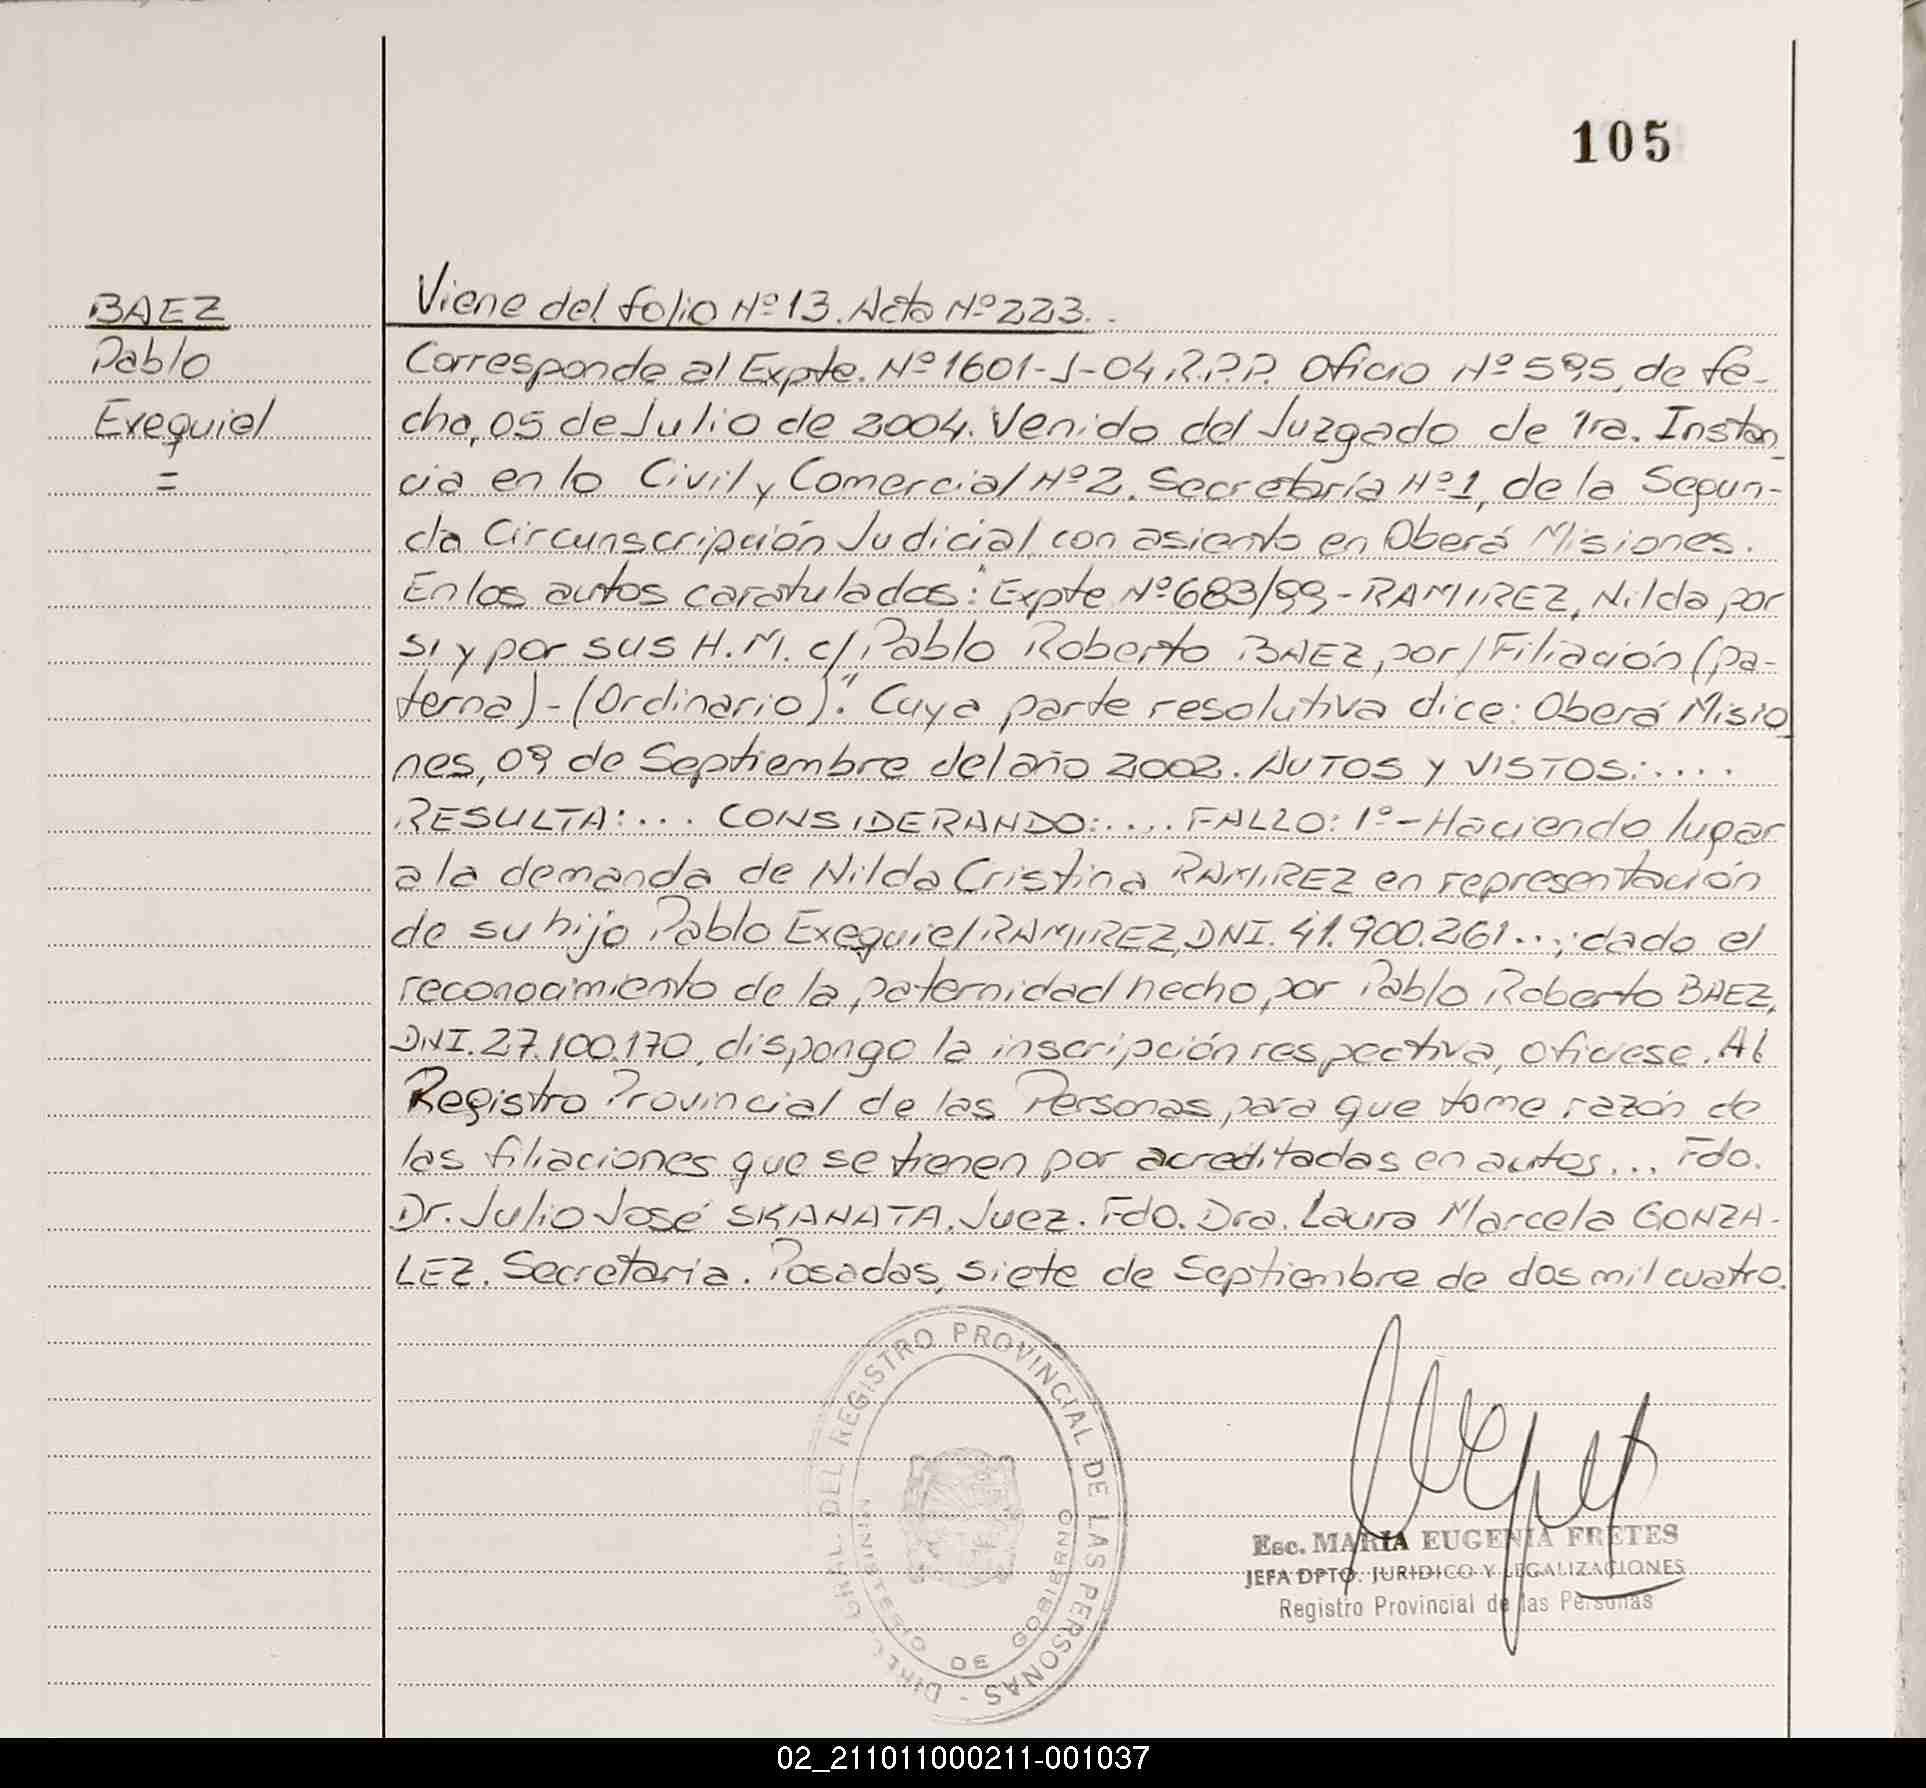 105
BAEZ
Pablo
Exequiel
=
Viene del folio Nº 13. Acta Nº 223.
Corresponde al Expte. Nº 1601-J-04.R.P.P. Oficio Nº 595, de fe-
cha, 05 de Julio de 2004. Venido del Juzgado de 1ra. Instan_
cia en lo Civil y Comercial Nº 2. Secretaría Nº 1, de la Segun-
da Circunscripción Judicial, con asiento en Oberá Misiones.
En los autos caratulados: "Expte Nº 683/99 - RAMIREZ, Nilda por
si y por sus H.M. c/ Pablo Roberto BAEZ, por/ Filiación (pa-
terna) - (Ordinario)". Cuya parte resolutiva dice: Oberá Misio_
nes, 09 de Septiembre del año 2002. AUTOS Y VISTOS:....
RESULTA:... CONSIDERANDO:.... FALLO: 1º - Haciendo lugar
a la demanda de Nilda Cristina RAMIREZ en representación
de su hijo Pablo Exequiel RAMIREZ, DNI. 41.900.261...; dado el
reconocimiento de la paternidad hecho por Pablo Roberto BAEZ,
DNI. 27.100.170, dispongo la inscripción respectiva, ofíciese. Al
Registro Provincial de las Personas, para que tome razón de
las filiaciones que se tienen por acreditadas en autos... Fdo.
Dr. Julio José SKANATA. Juez. Fdo. Dra. Laura Marcela GONZA-
LEZ. Secretaria. Posadas, siete de Septiembre de dos mil cuatro.
DIRECC. GRAL. DEL REGISTRO PROVINCIAL DE LAS PERSONAS -
MINISTERIO DE GOBIERNO
Esc. MARIA EUGENIA FRETES
JEFA DPTO. JURIDICO Y LEGALIZACIONES
Registro Provincial de las Personas
02_211011000211-001037